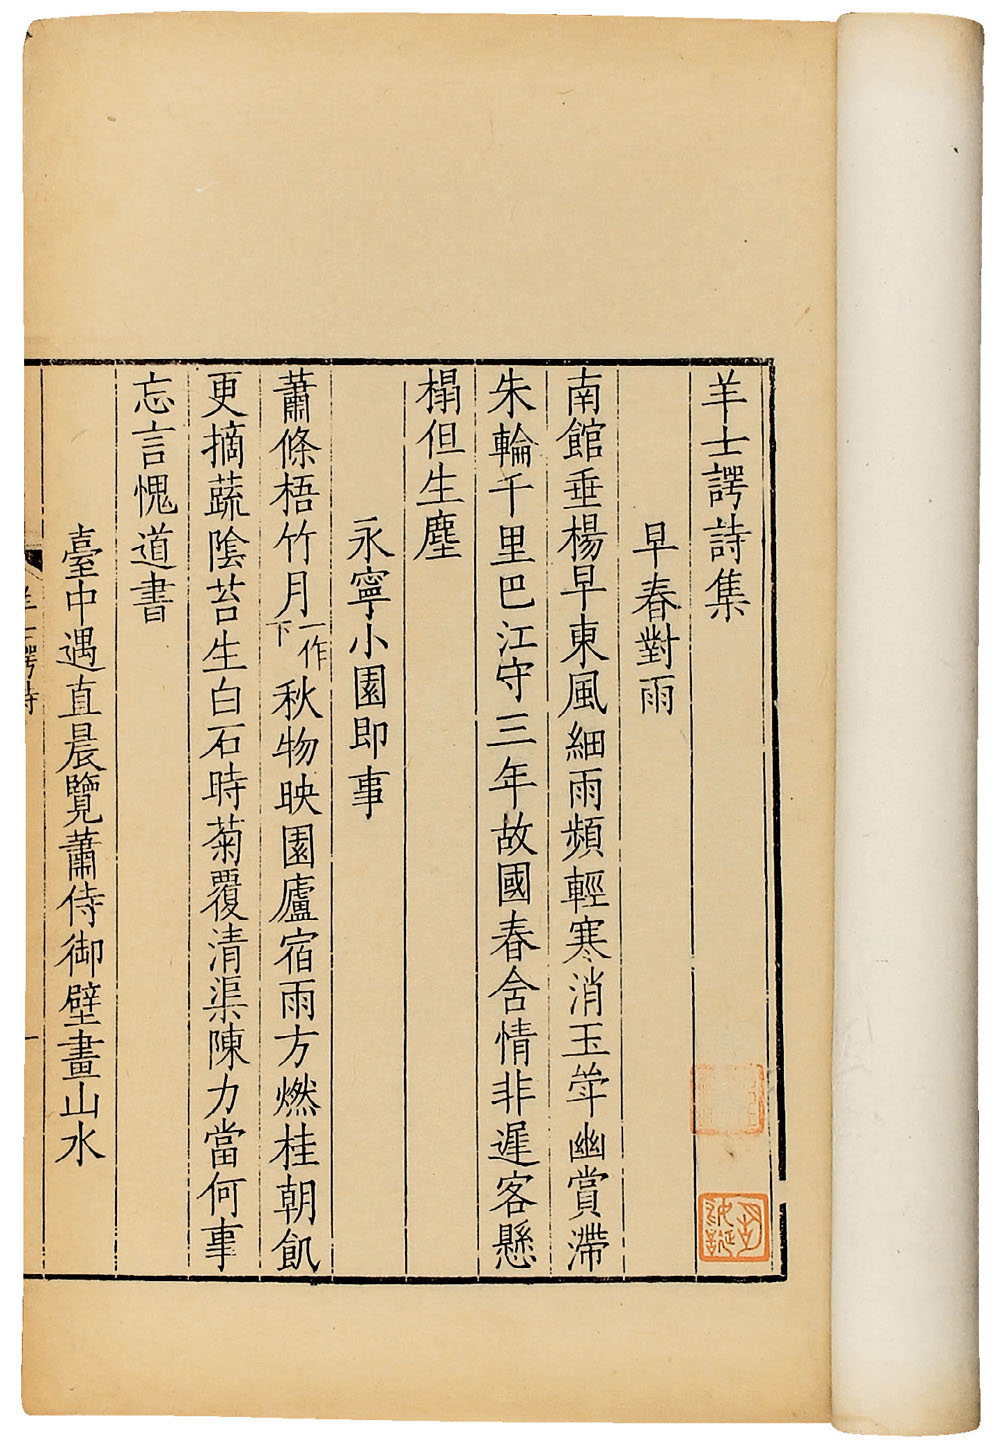 羊士諤詩集
早春對雨
南館垂楊早東風細雨頻輕寒消玉斝幽賞滯
朱輪千里巴江守三年故國春含情非遲客懸
榻但生塵
永寧小園即事
蕭條梧竹月一作下秋物映園廬宿雨方燃桂朝飢
更摘蔬陰苔生白石時菊覆清渠陳力當何事
忘言愧道書
臺中遇直晨覽蕭侍御壁畫山水
一